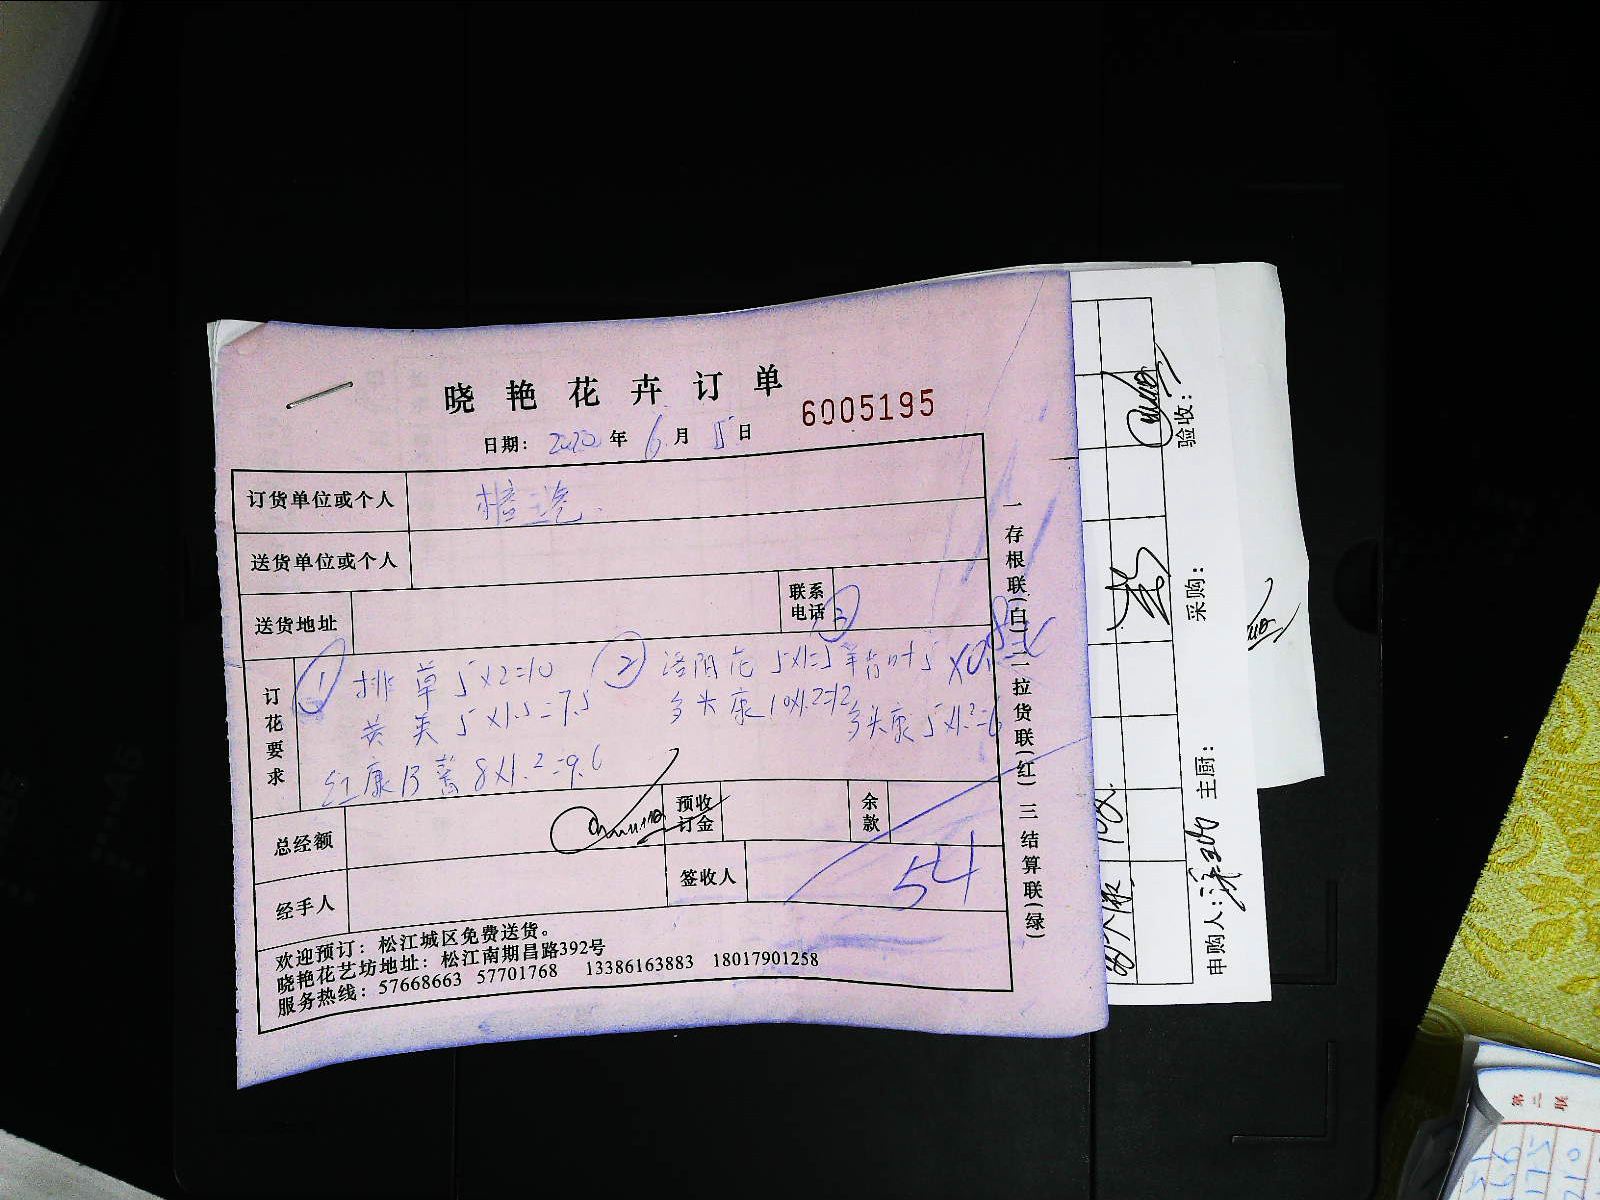 晓艳花卉订单
6005195
日期: 2020 年 6 月 15 日
订货单位或个人
送货单位或个人
送货地址
联系电话
订花要求
① 排草 5×2=10
黄英 5×1.5=7.5
红康乃馨 8×1.2=9.6
② 洛阳花 5×1=5
多头康 10×1.2=12
③
多头康 5×1.2=6
总经额
预收订金
余款
经手人
签收人
54
欢迎预订: 松江城区免费送货。
晓艳花艺坊地址: 松江南期昌路392号
服务热线: 57668663 57701768 13386163883 18017901258
一存根联(白)二拉货联(红)三结算联(绿)
验收:
采购:
主厨:
申购人:
第二联